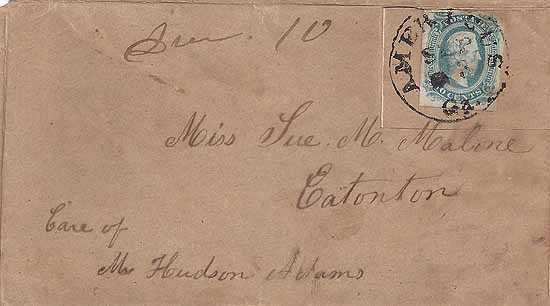 10
AMERICUS
GA.
POSTAGE
10 CENTS
Miss Sue. M. Malone
Eatonton
Care of
Mr Hudson Adams